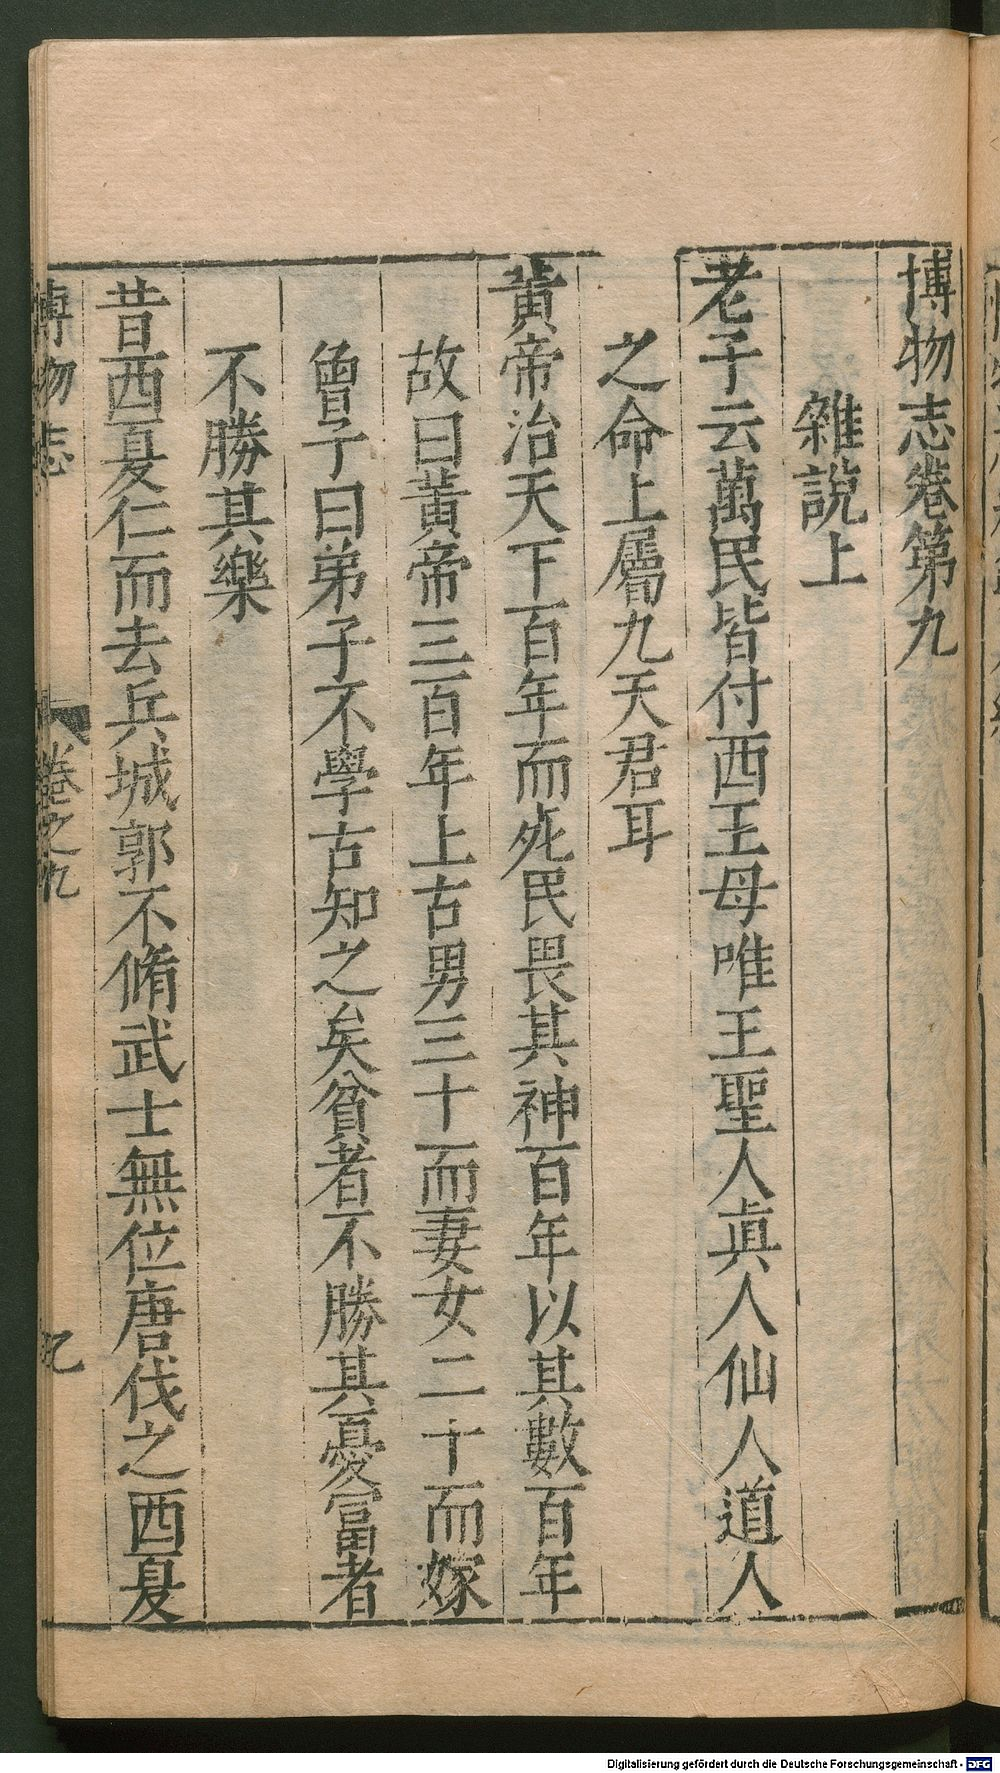 博物志卷第九
雜說上
老子云萬民皆付西王母唯王聖人真人仙人道人
之命上屬九天君耳
黃帝治天下百年而死民畏其神百年以其數百年
故曰黃帝三百年上古男三十而妻女二十而嫁
曾子曰弟子不學古知之矣貧者不勝其憂富者
不勝其樂
昔西夏仁而去兵城郭不脩武士無位唐伐之西夏
博物志
卷之九
Digitalisierung gefördert durch die Deutsche Forschungsgemeinschaft - DFG